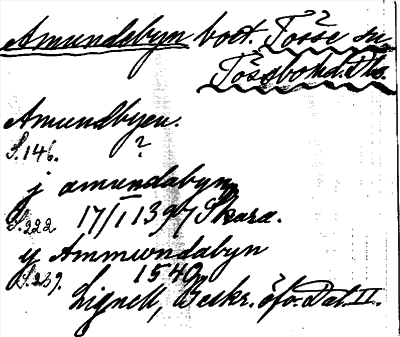 Amundebyn bost. Tösse sn
Tössbohd. Dls.
Amundbyen.
S. 146. ?
j amundabynn
S. 222. 17/I 1397 Skara.
y Ammwndabyn
S. 239. 1540
Lignell, Beskr. öfv. Dal. II.